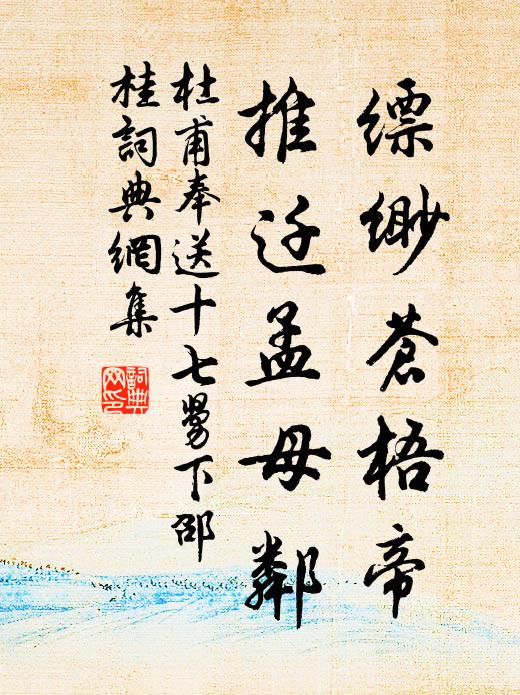 缥缈苍梧帝
推迁孟母鄰
杜甫奉送十七舅下邵
桂詞典網集
詞典
网印